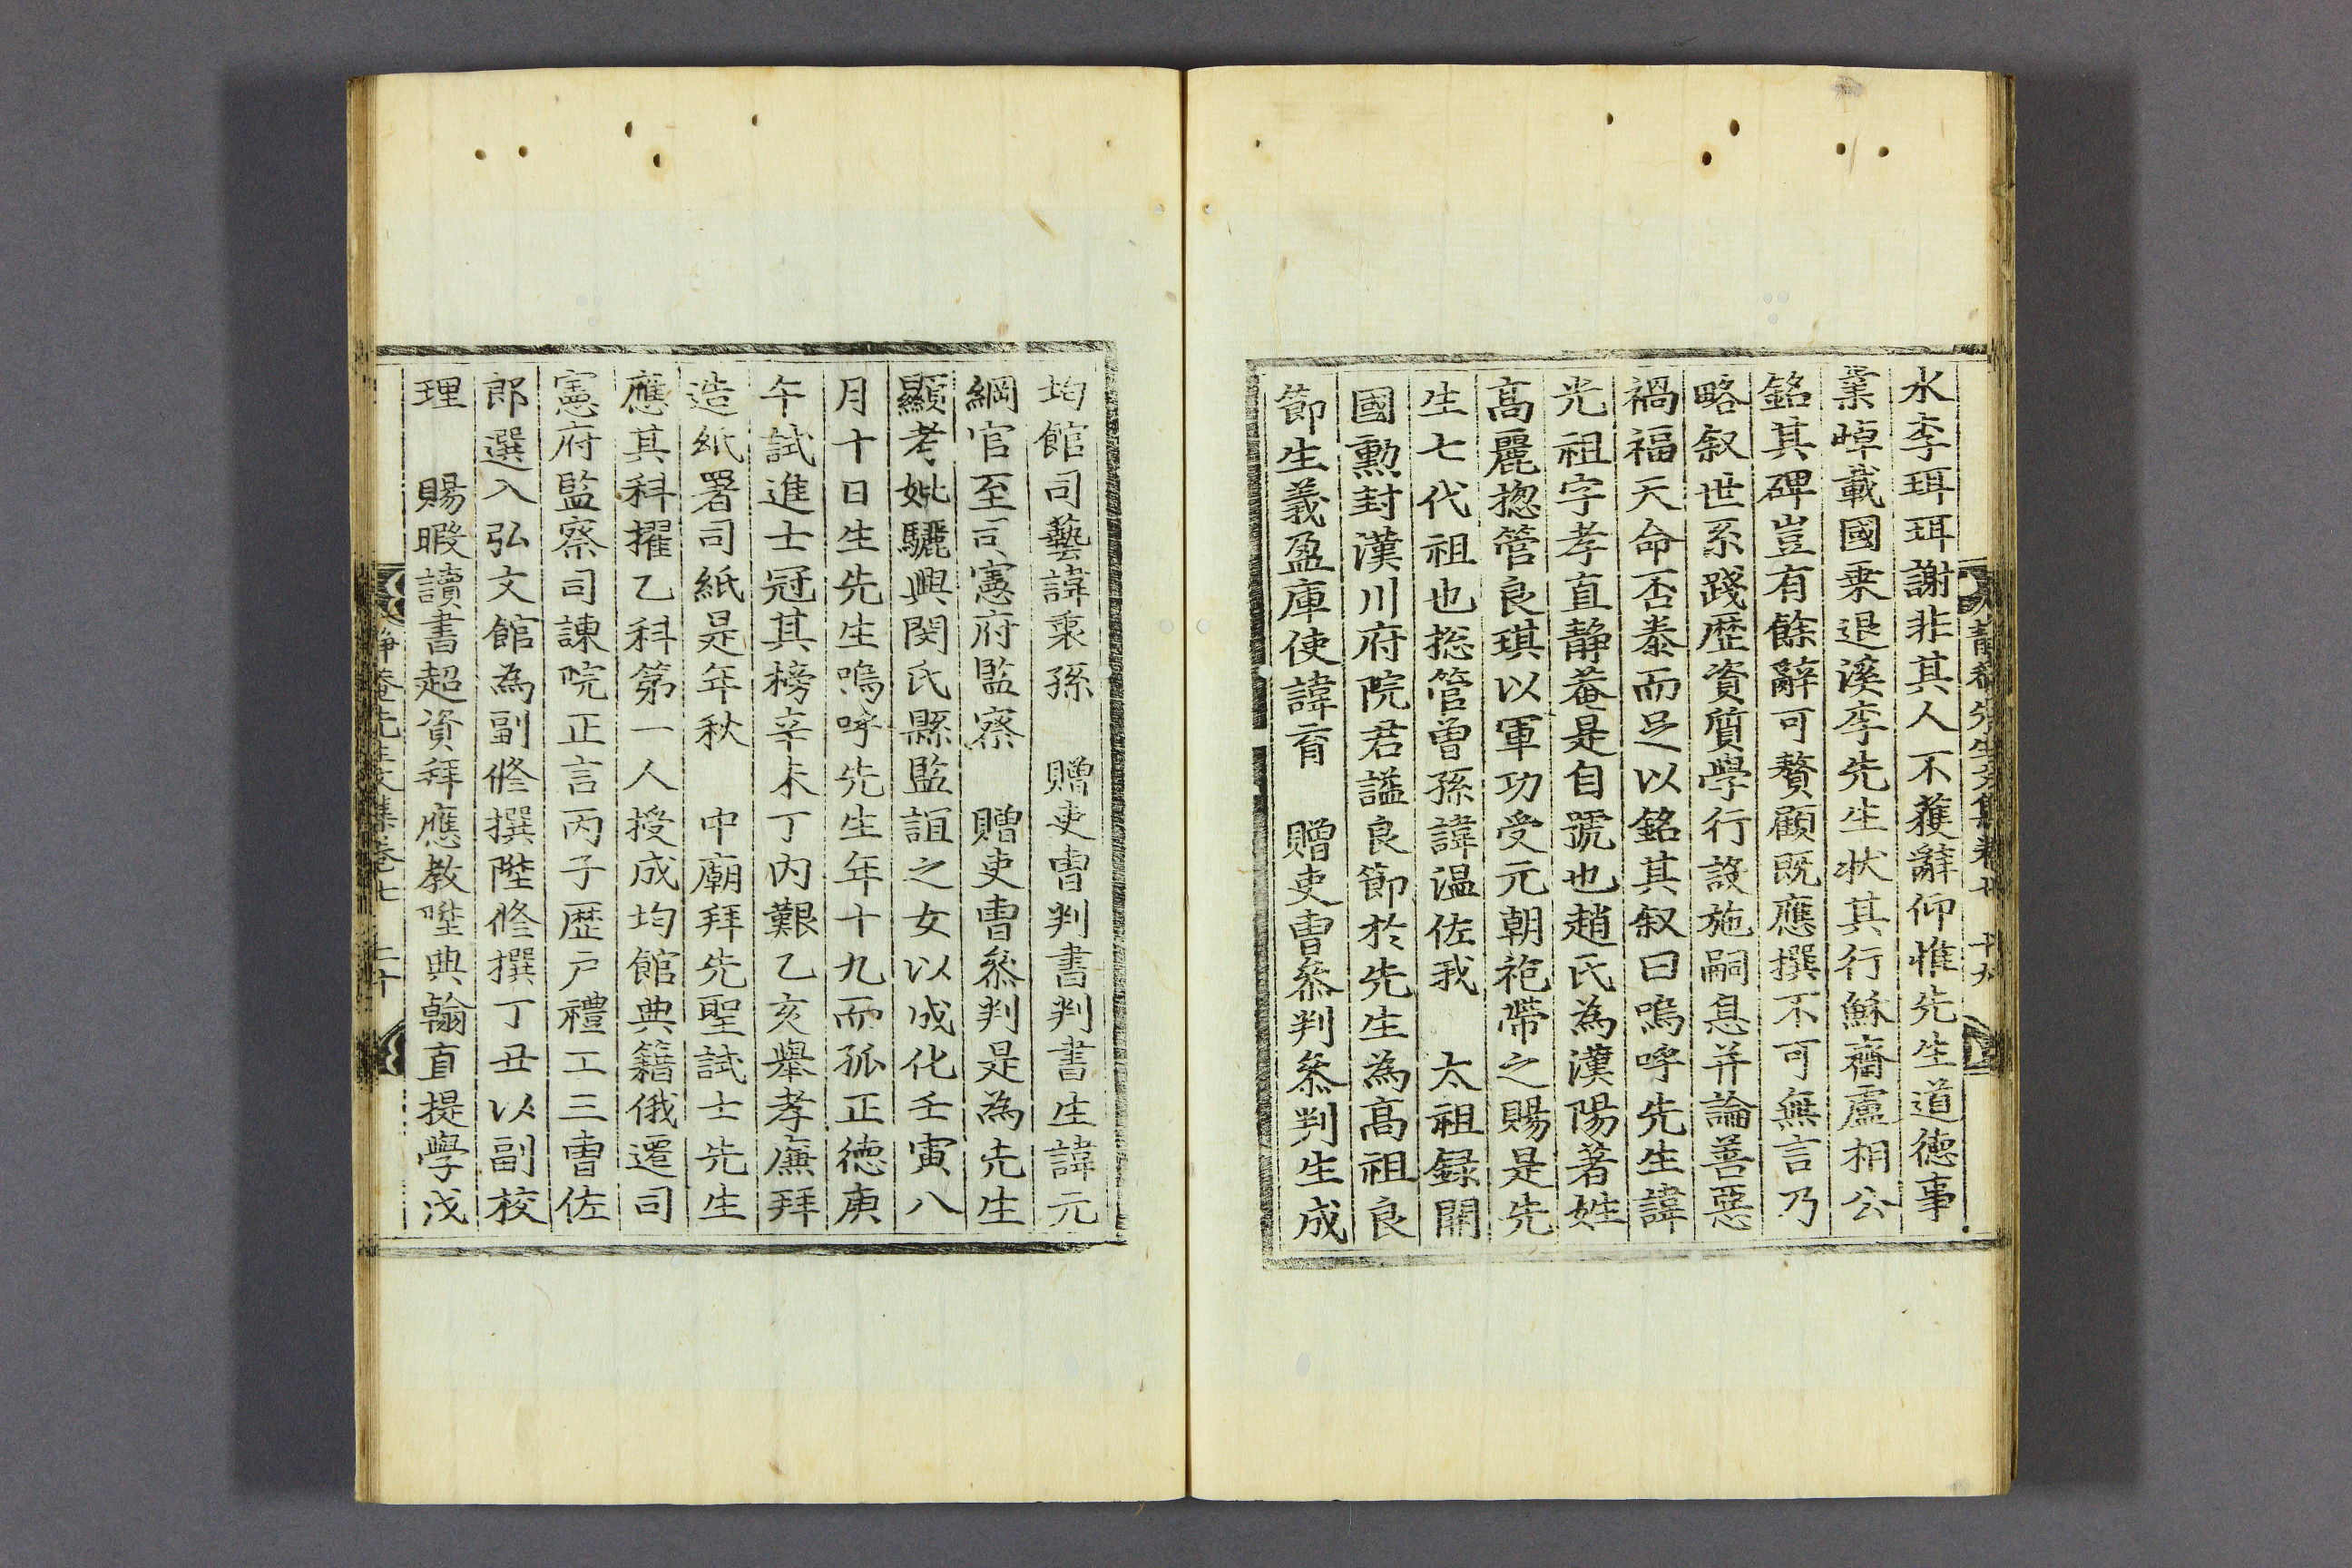 水李珥珥謝非其人不獲辭仰惟先生道德事
業焯載國乗退溪李先生狀其行穌齋盧相公
銘其碑豈有餘辭可贅顧既應撰不可無言乃
略叙世系踐歴資質學行設施嗣息并論善惡
禍福天命否泰而足以銘其叙曰嗚呼先生諱
光祖字孝直静菴是自號也趙氏為漢陽著姓
高麗揔管良琪以軍功受元朝袍帶之賜是先
生七代祖也揔管曽孫諱温佐我 太祖録開
國勲封漢川府院君諡良節於先生為高祖良
節生義盈庫使諱育 贈吏曺叅判叅判生成
均館司藝諱衷孫 贈吏曺判書判書生諱元
綱官至司憲府監察 贈吏曺叅判是為先生
顯考妣驪興閔氏縣監誼之女以成化壬寅八
月十日生先生嗚呼先生年十九而孤正德庚
午試進士冠其榜辛未丁内艱乙亥舉孝廉拜
造紙署司紙是年秋 中廟拜先聖試士先生
應其科擢乙科第一人授成均館典籍俄遷司
憲府監察司諫院正言丙子歴户禮工三曺佐
郎選入弘文館為副修撰陞修撰丁丑以副校
理 賜暇讀書超資拜應教陞典翰直提學戊
静菴先生文集卷七 二十